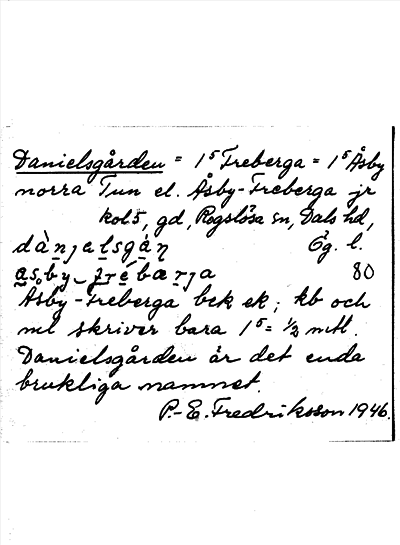 Danielsgården = 1⁵ Freberga = 1⁵ Åsby
norra Tun el. Åsby-Freberga jr
kol 5, gd, Rogslösa sn, Dals hd,
dànjalsgáṇ Ög. l.
asby-frébærja 80
Åsby-Freberga bek ek; kb och
ml skriver bara 1⁵ = ½ mtl.
Danielsgården är det enda
brukliga namnet.
P.-E. Fredriksson 1946.